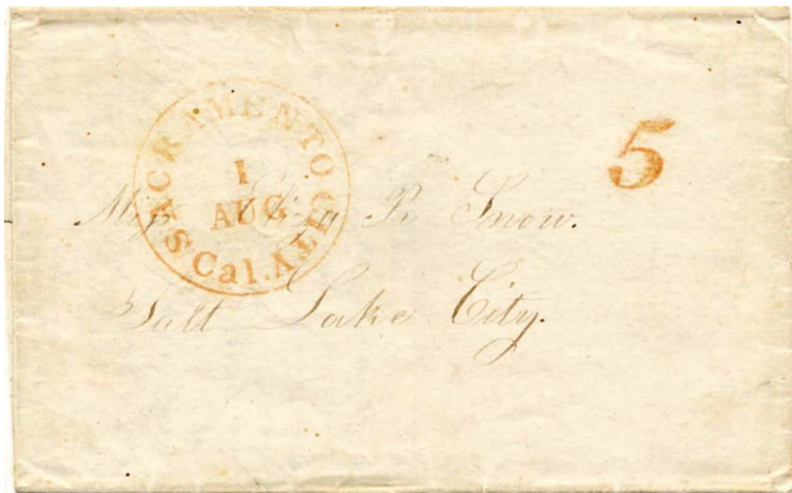 SACRAMENTO CITY
1
AUG
Cal.
5
Miss Eliza R. Snow.
Salt Lake City.